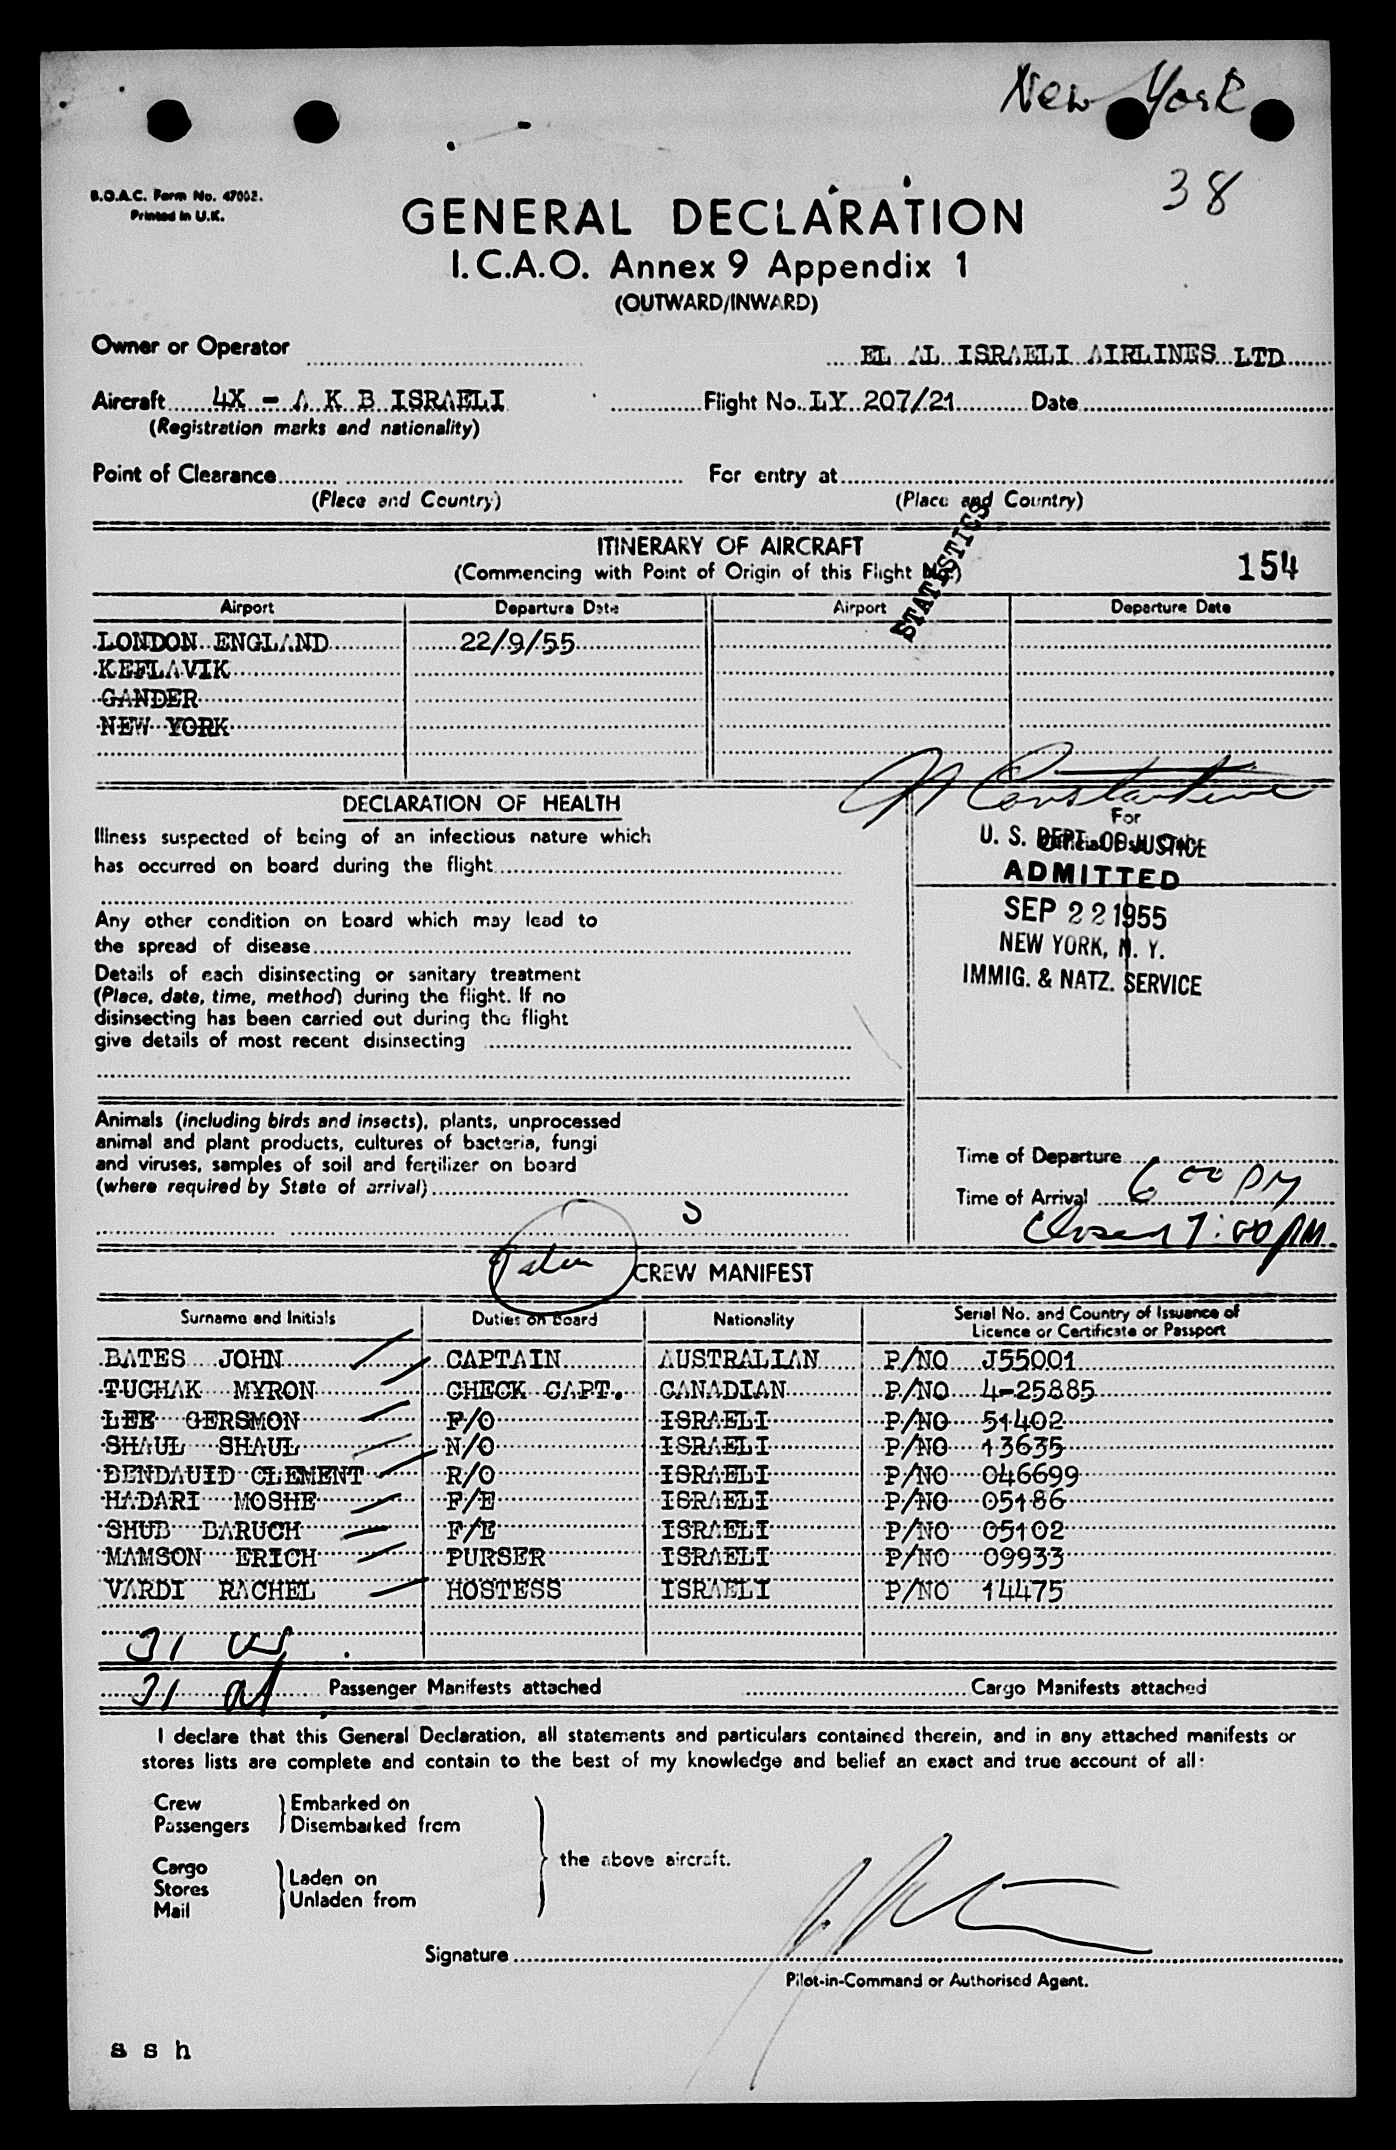 New York
38
B.O.A.C. Form No. 47002.
Printed in U.K.
GENERAL DECLARATION
I.C.A.O. Annex 9 Appendix 1
(OUTWARD/INWARD)
Owner or Operator EL AL ISRAELI AIRLINES LTD
Aircraft 4X - A K B ISRAELI Flight No. LY 207/21 Date
(Registration marks and nationality)
Point of Clearance For entry at
(Place and Country) (Place and Country)
STATISTICS
ITINERARY OF AIRCRAFT
(Commencing with Point of Origin of this Flight No.) 154
Airport Departure Date Airport Departure Date
LONDON ENGLAND 22/9/55
KEFLAVIK
GANDER
NEW YORK
N Constantine
DECLARATION OF HEALTH
For
Official Use Only
Illness suspected of being of an infectious nature which
has occurred on board during the flight
U. S. DEPT. OF JUSTICE
ADMITTED
SEP 22 1955
NEW YORK, N. Y.
IMMIG. & NATZ. SERVICE
Any other condition on board which may lead to
the spread of disease
Details of each disinsecting or sanitary treatment
(Place, date, time, method) during the flight. If no
disinsecting has been carried out during the flight
give details of most recent disinsecting
Animals (including birds and insects), plants, unprocessed
animal and plant products, cultures of bacteria, fungi
and viruses, samples of soil and fertilizer on board
(where required by State of arrival)
Time of Departure
Time of Arrival 6 00 PM
Closed 7:00 PM
CREW MANIFEST
Surname and Initials Duties on Board Nationality Serial No. and Country of Issuance of
Licence or Certificate or Passport
BATES JOHN CAPTAIN AUSTRALIAN P/NO J55001
TUCHAK MYRON CHECK CAPT. CANADIAN P/NO 4-25885
LEE GERSMON F/O ISRAELI P/NO 51402
SHAUL SHAUL N/O ISRAELI P/NO 13635
BENDAUID CLEMENT R/O ISRAELI P/NO 046699
HADARI MOSHE F/E ISRAELI P/NO 05186
SHUB BARUCH F/E ISRAELI P/NO 05102
MAMSON ERICH PURSER ISRAELI P/NO 09933
VARDI RACHEL HOSTESS ISRAELI P/NO 14475
31
31 Passenger Manifests attached Cargo Manifests attached
I declare that this General Declaration, all statements and particulars contained therein, and in any attached manifests or
stores lists are complete and contain to the best of my knowledge and belief an exact and true account of all:
Crew Embarked on
Passengers Disembarked from
the above aircraft.
Cargo
Stores Laden on
Mail Unladen from
Signature
Pilot-in-Command or Authorised Agent.
s s h